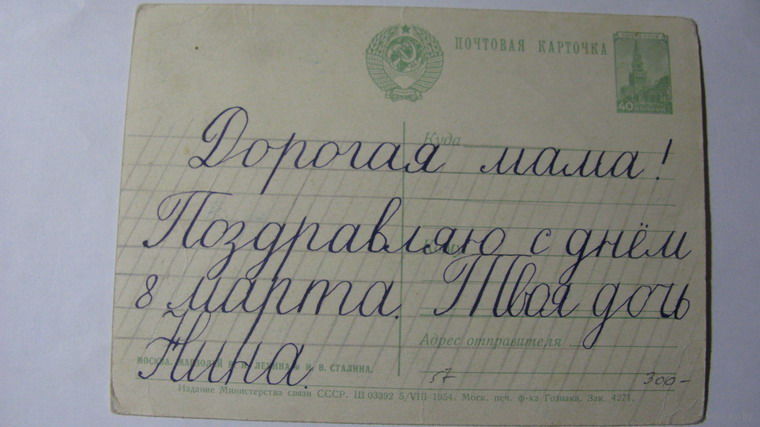 ПОЧТОВАЯ КАРТОЧКА
40
Куда
Дорогая мама!
Поздравляю с днём
8 марта. Твоя дочь
Нина.
Адрес отправителя
МОСКВА. МАВЗОЛЕЙ В. И. ЛЕНИНА и И. В. СТАЛИНА.
57
300-
Издание Министерства связи СССР. Ш 03392 5/VIII 1954. Моск. печ. ф-ка Гознака. Зак. 4271.